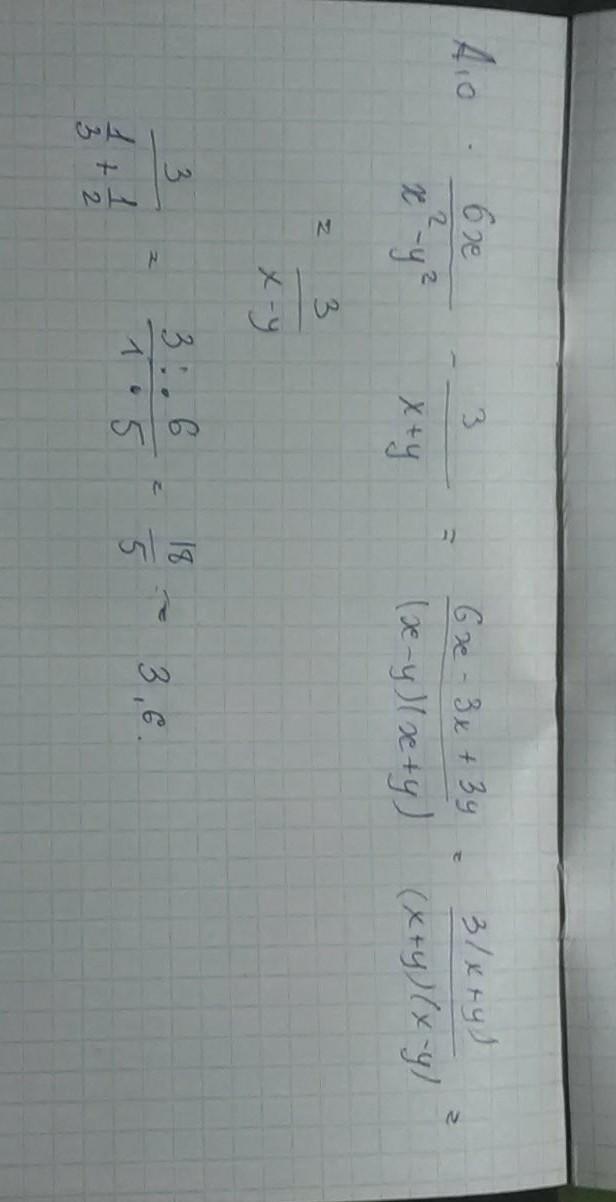 A10. 6x/(x²-y²) - 3/(x+y) = (6x-3x+3y)/((x-y)(x+y)) = 3(x+y)/((x+y)(x-y)) =
= 3/(x-y)
3/(1/3+1/2) = (3·6)/(1·5) = 18/5 = 3,6.